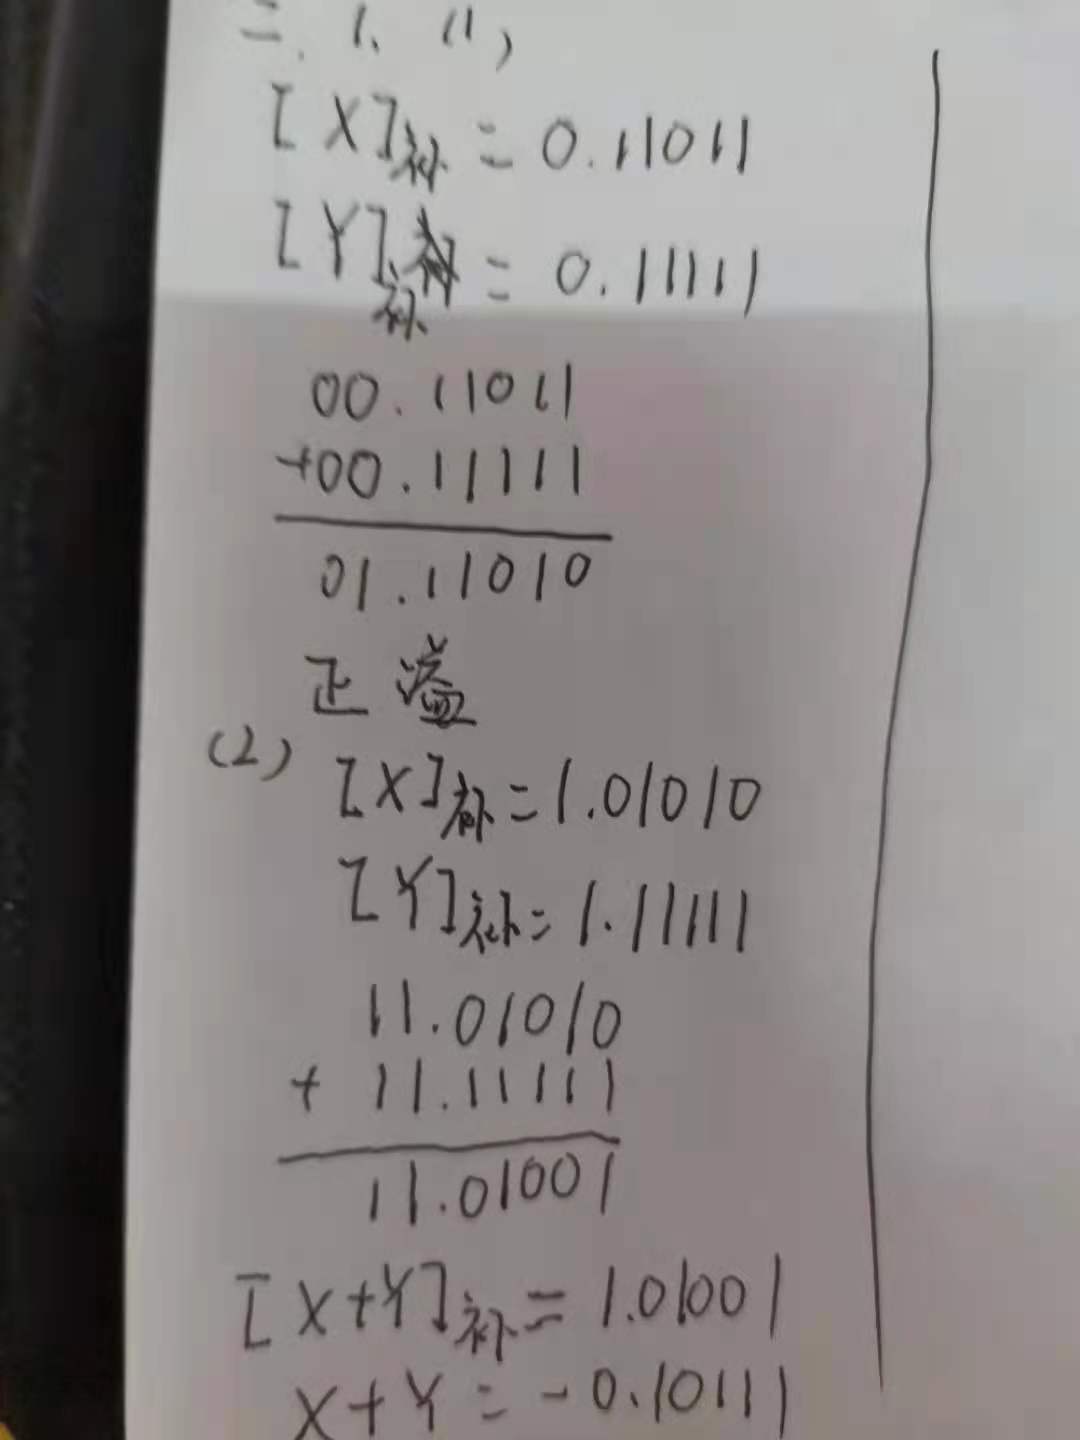 二. 1. (1)
[X]补 = 0.11011
[Y]补 = 0.11111
00.11011
+00.11111
01.11010
正溢
(2) [X]补=1.01010
[Y]补=1.11111
11.01010
+ 11.11111
11.01001
[X+Y]补=1.01001
X+Y=-0.10111